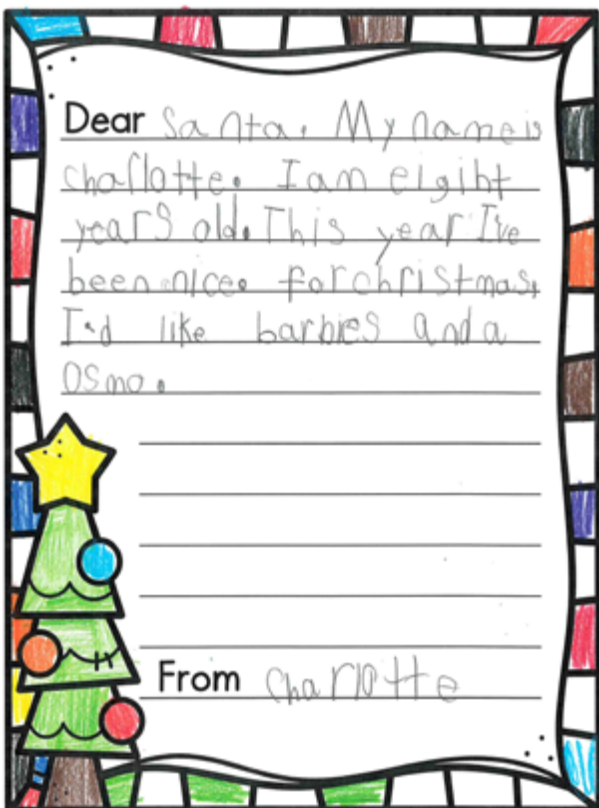 Dear Santa. My name is
charlotte. I am eigiht
years old. This year I've
been nice. for christmas,
I'd like barbies and a
Osmo.
From Charlotte